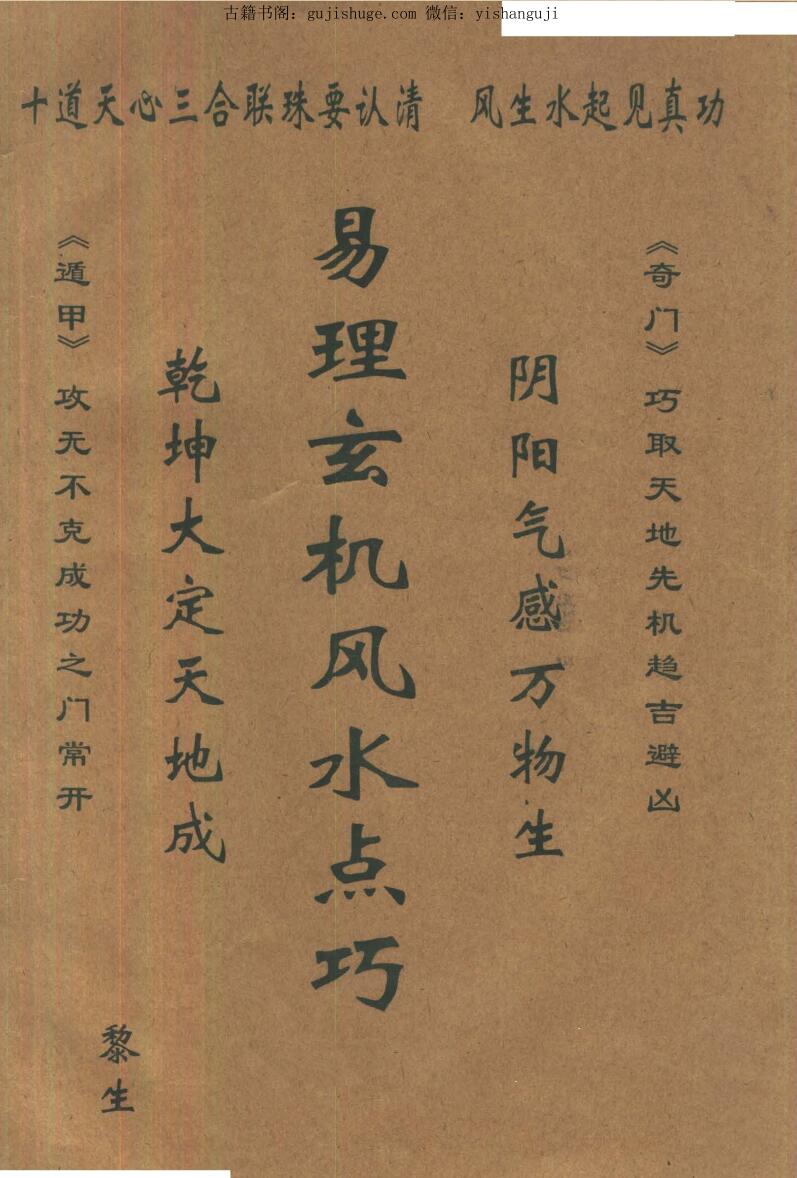 古籍书阁：gujishuge.com 微信：yishanguji
十道天心三合联珠要认清 风生水起见真功
《奇门》巧取天地先机趋吉避凶
阴阳气感万物生
易理玄机风水点巧
乾坤大定天地成
《遁甲》攻无不克成功之门常开
黎生